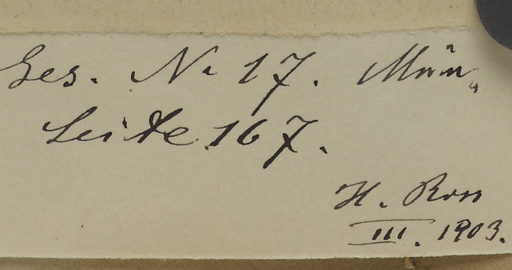 Ges. No 17. Mün„
Seite 167.
H. Ross
III. 1903.